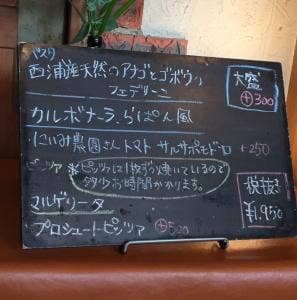 パスタ
西浦産天然のアナゴとゴボウの
フェデリーニ
大盛
⊕300
カルボナーラ らぱん風
にいみ農園さんトマト サルサポモドーロ +250
ピッツァ ※ピッツァは1枚ずつ焼いているので
多少お時間かかります。
税抜き
¥1,950
マルゲリータ
プロシュートピッツァ ⊕500